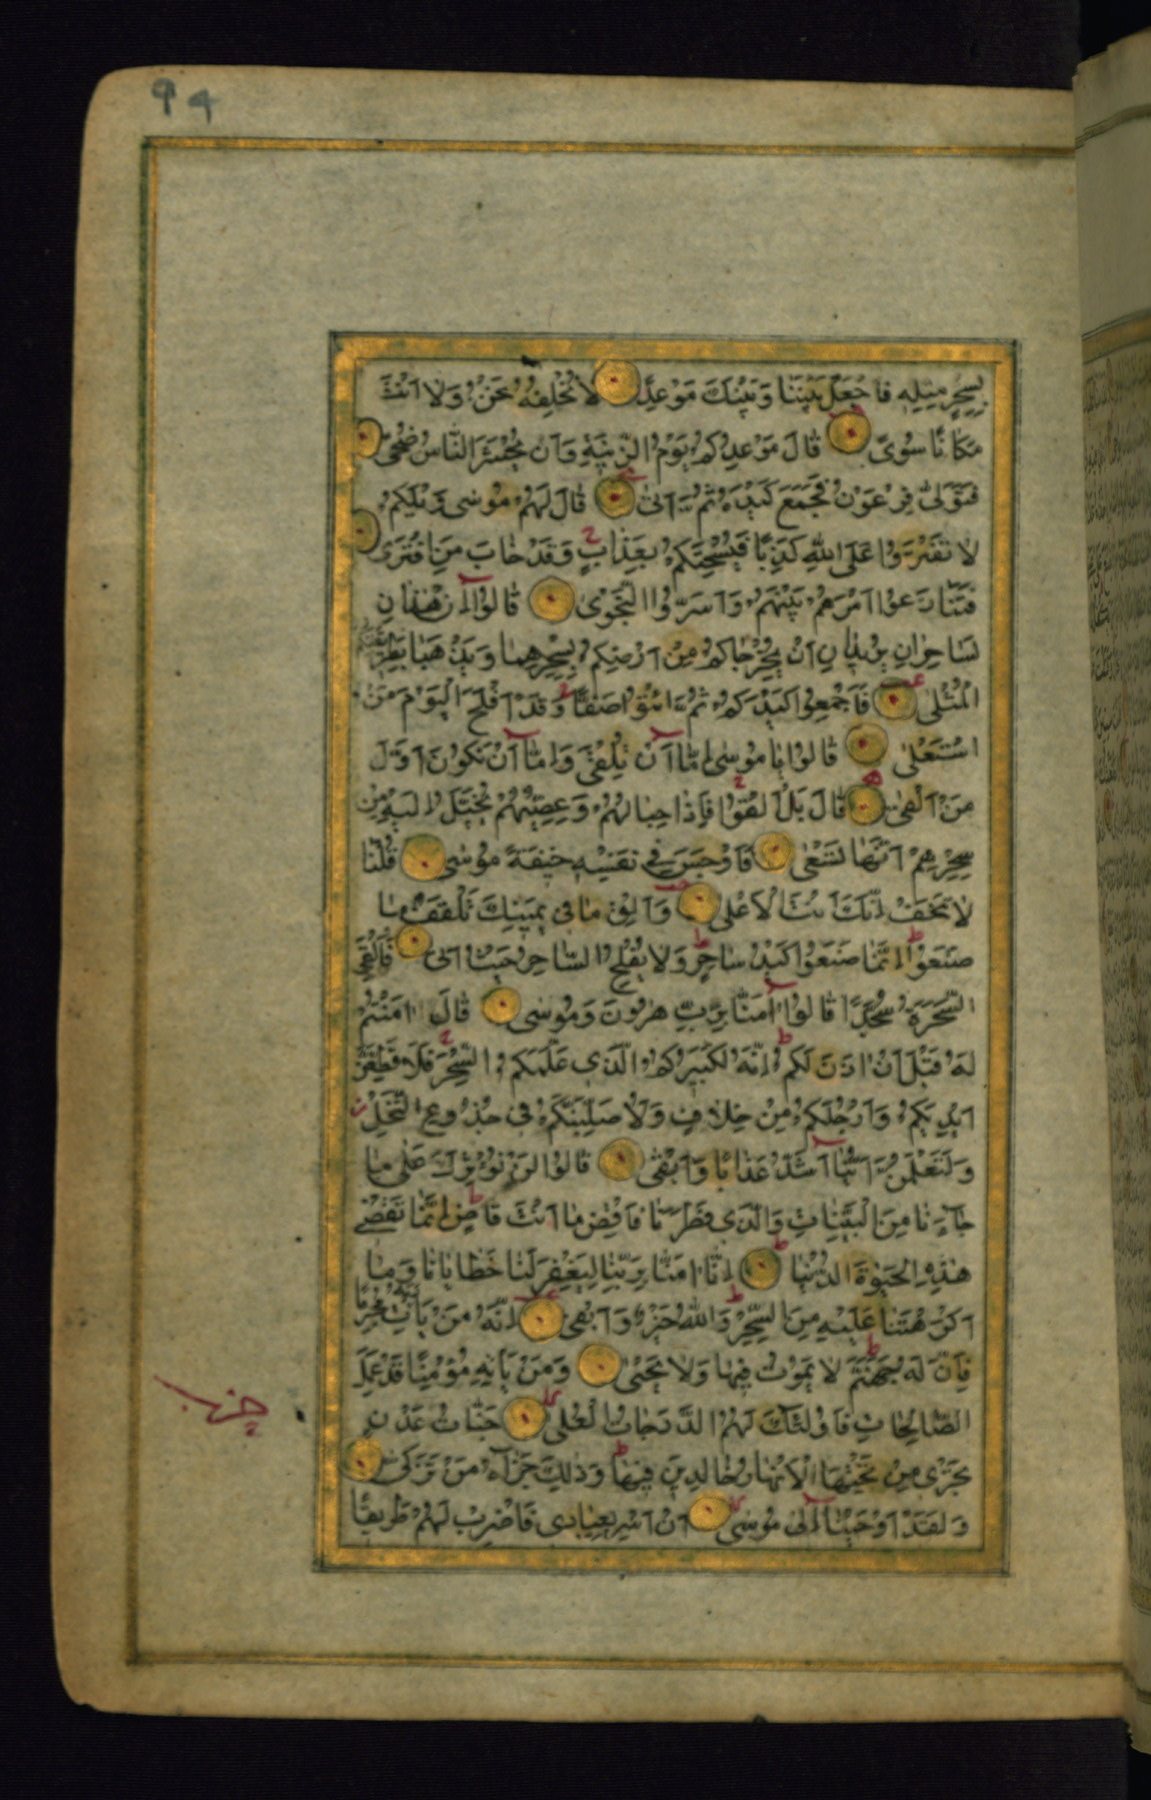 ٩٩
بِسِحْرٍ مِثْلِهِ فَاجْعَلْ بَيْنَنَا وَبَيْنَكَ مَوْعِدًا لَا نُخْلِفُهُ نَحْنُ وَلَا أَنْتَ
مَكَانًا سُوًى قَالَ مَوْعِدُكُمْ يَوْمُ الزِّينَةِ وَأَنْ يُحْشَرَ النَّاسُ ضُحًى
فَتَوَلَّىٰ فِرْعَوْنُ فَجَمَعَ كَيْدَهُ ثُمَّ أَتَىٰ قَالَ لَهُمْ مُوسَىٰ وَيْلَكُمْ
لَا تَفْتَرُوا عَلَى اللَّهِ كَذِبًا فَيُسْحِتَكُمْ بِعَذَابٍ وَقَدْ خَابَ مَنِ افْتَرَىٰ
فَتَنَازَعُوا أَمْرَهُمْ بَيْنَهُمْ وَأَسَرُّوا النَّجْوَىٰ قَالُوا إِنْ هَٰذَانِ
لَسَاحِرَانِ يُرِيدَانِ أَنْ يُخْرِجَاكُمْ مِنْ أَرْضِكُمْ بِسِحْرِهِمَا وَيَذْهَبَا بِطَرِيقَتِكُمُ
الْمُثْلَىٰ فَأَجْمِعُوا كَيْدَكُمْ ثُمَّ ائْتُوا صَفًّا وَقَدْ أَفْلَحَ الْيَوْمَ مَنِ
اسْتَعْلَىٰ قَالُوا يَا مُوسَىٰ إِمَّا أَنْ تُلْقِيَ وَإِمَّا أَنْ نَكُونَ أَوَّلَ
مَنْ أَلْقَىٰ قَالَ بَلْ أَلْقُوا فَإِذَا حِبَالُهُمْ وَعِصِيُّهُمْ يُخَيَّلُ إِلَيْهِ مِنْ
سِحْرِهِمْ أَنَّهَا تَسْعَىٰ فَأَوْجَسَ فِي نَفْسِهِ خِيفَةً مُوسَىٰ قُلْنَا
لَا تَخَفْ إِنَّكَ أَنْتَ الْأَعْلَىٰ وَأَلْقِ مَا فِي يَمِينِكَ تَلْقَفْ مَا
صَنَعُوا إِنَّمَا صَنَعُوا كَيْدُ سَاحِرٍ وَلَا يُفْلِحُ السَّاحِرُ حَيْثُ أَتَىٰ فَأُلْقِيَ
السَّحَرَةُ سُجَّدًا قَالُوا آمَنَّا بِرَبِّ هَارُونَ وَمُوسَىٰ قَالَ آمَنْتُمْ
لَهُ قَبْلَ أَنْ آذَنَ لَكُمْ إِنَّهُ لَكَبِيرُكُمُ الَّذِي عَلَّمَكُمُ السِّحْرَ فَلَأُقَطِّعَنَّ
أَيْدِيَكُمْ وَأَرْجُلَكُمْ مِنْ خِلَافٍ وَلَأُصَلِّبَنَّكُمْ فِي جُذُوعِ النَّخْلِ
وَلَتَعْلَمُنَّ أَيُّنَا أَشَدُّ عَذَابًا وَأَبْقَىٰ قَالُوا لَنْ نُؤْثِرَكَ عَلَىٰ مَا
جَاءَنَا مِنَ الْبَيِّنَاتِ وَالَّذِي فَطَرَنَا فَاقْضِ مَا أَنْتَ قَاضٍ إِنَّمَا تَقْضِي
هَٰذِهِ الْحَيٰوةَ الدُّنْيَا إِنَّا آمَنَّا بِرَبِّنَا لِيَغْفِرَ لَنَا خَطَايَانَا وَمَا
أَكْرَهْتَنَا عَلَيْهِ مِنَ السِّحْرِ وَاللَّهُ خَيْرٌ وَأَبْقَىٰ إِنَّهُ مَنْ يَأْتِ رَبَّهُ مُجْرِمًا
فَإِنَّ لَهُ جَهَنَّمَ لَا يَمُوتُ فِيهَا وَلَا يَحْيَىٰ وَمَنْ يَأْتِهِ مُؤْمِنًا قَدْ عَمِلَ
الصَّالِحَاتِ فَأُولَٰئِكَ لَهُمُ الدَّرَجَاتُ الْعُلَىٰ جَنَّاتُ عَدْنٍ
تَجْرِي مِنْ تَحْتِهَا الْأَنْهَارُ خَالِدِينَ فِيهَا وَذَٰلِكَ جَزَاءُ مَنْ تَزَكَّىٰ
وَلَقَدْ أَوْحَيْنَا إِلَىٰ مُوسَىٰ أَنْ أَسْرِ بِعِبَادِي فَاضْرِبْ لَهُمْ طَرِيقًا
حزب